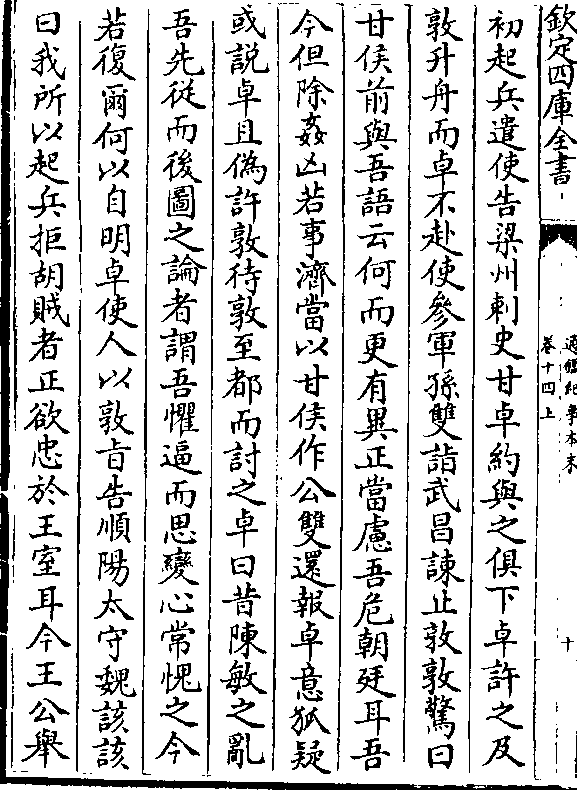 欽定四庫全書
通鑑紀事本末
卷十四上
十
初起兵遣使告梁州刺史甘卓約與之俱下卓許之及
敦升舟而卓不赴使參軍孫雙詣武昌諫止敦敦驚曰
甘侯前與吾語云何而更有異正當慮吾危朝廷耳吾
今但除姦凶若事濟當以甘侯作公雙還報卓意狐疑
或説卓且偽許敦待敦至都而討之卓曰昔陳敏之亂
吾先從而後圖之論者謂吾懼逼而思變心常愧之今
若復爾何以自明卓使人以敦旨告順陽太守魏該該
曰我所以起兵拒胡賊者正欲忠於王室耳今王公舉